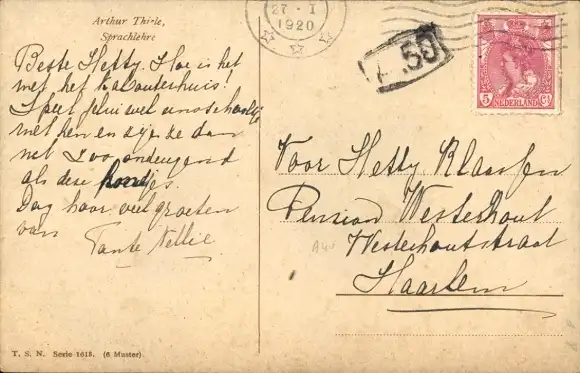 Arthur Thiele,
Sprachlehre
Beste Hetty. Hoe is het
met het kabouterhuis!
Speel jelui wel eens schooltje
met hen en zijn ze dan
net zoo ondeugend
als deze hondjes.
Dag hoor veel groeten
van Tante Nellie
T. S. N. Serie 1615. (6 Muster)
27 - 1
1920
.50
5 NEDERLAND Ct
Voor Hetty Klaassen
Pension Westerhout
Westerhoutstraat
Haarlem